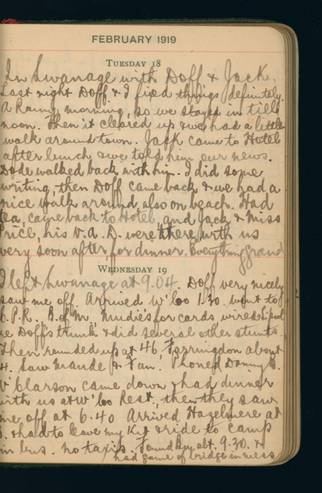 FEBRUARY 1919
TUESDAY 18
In Swanage with Doff & Jack.
Last night Doff & I fixed things definitely.
A rainy morning, so we stayed in till
noon. Then it cleared up & we had a little
walk around town. Jack came to Hotel
after lunch & we told him our news.
Dode walked back with him. I did some
writing, then Doff came back & we had a
nice walk around, also on beach. Had
tea, came back to Hotel, and Jack & Miss
Rice, his V.A.D. were there with us
very soon after for dinner. Everything grand
WEDNESDAY 19
I left Swanage at 9.04. Doff very nicely
saw me off. Arrived W'loo 1.30. went to
C.P.R. B. of M. Mudie's for cards wired
re Doff's trunk & did several other stunts
Then rounded up at 46 Farringdon about
4. Saw Maude & Fan. Phoned Danny &
V Clarson came down & had dinner
with us at W'loo Rest, then they saw
me off at 6.40 Arrived Hazelmere at
& had to leave my Kit & ride to camp
in bus. no taxis. Found alt. 9.30. &
had game of bridge in mess